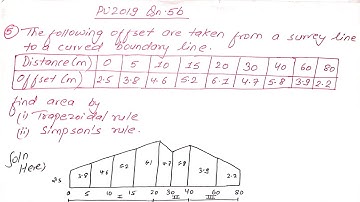 PU2019 Qn.5b
⑤ The following offset are taken from a survey line
to a curved boundary line.
Distance(m) 0 5 10 15 20 30 40 60 80
Offset(m) 2.5 3.8 4.6 5.2 6.1 4.7 5.8 3.9 2.2
find area by
(i) Trapezoidal rule
(ii) Simpson's rule.
Soln
Here,
2.5 3.8 4.6 5.2 6.1 4.7 5.8 3.9 2.2
0 5 10 15 20 30 40 60 80
I II III